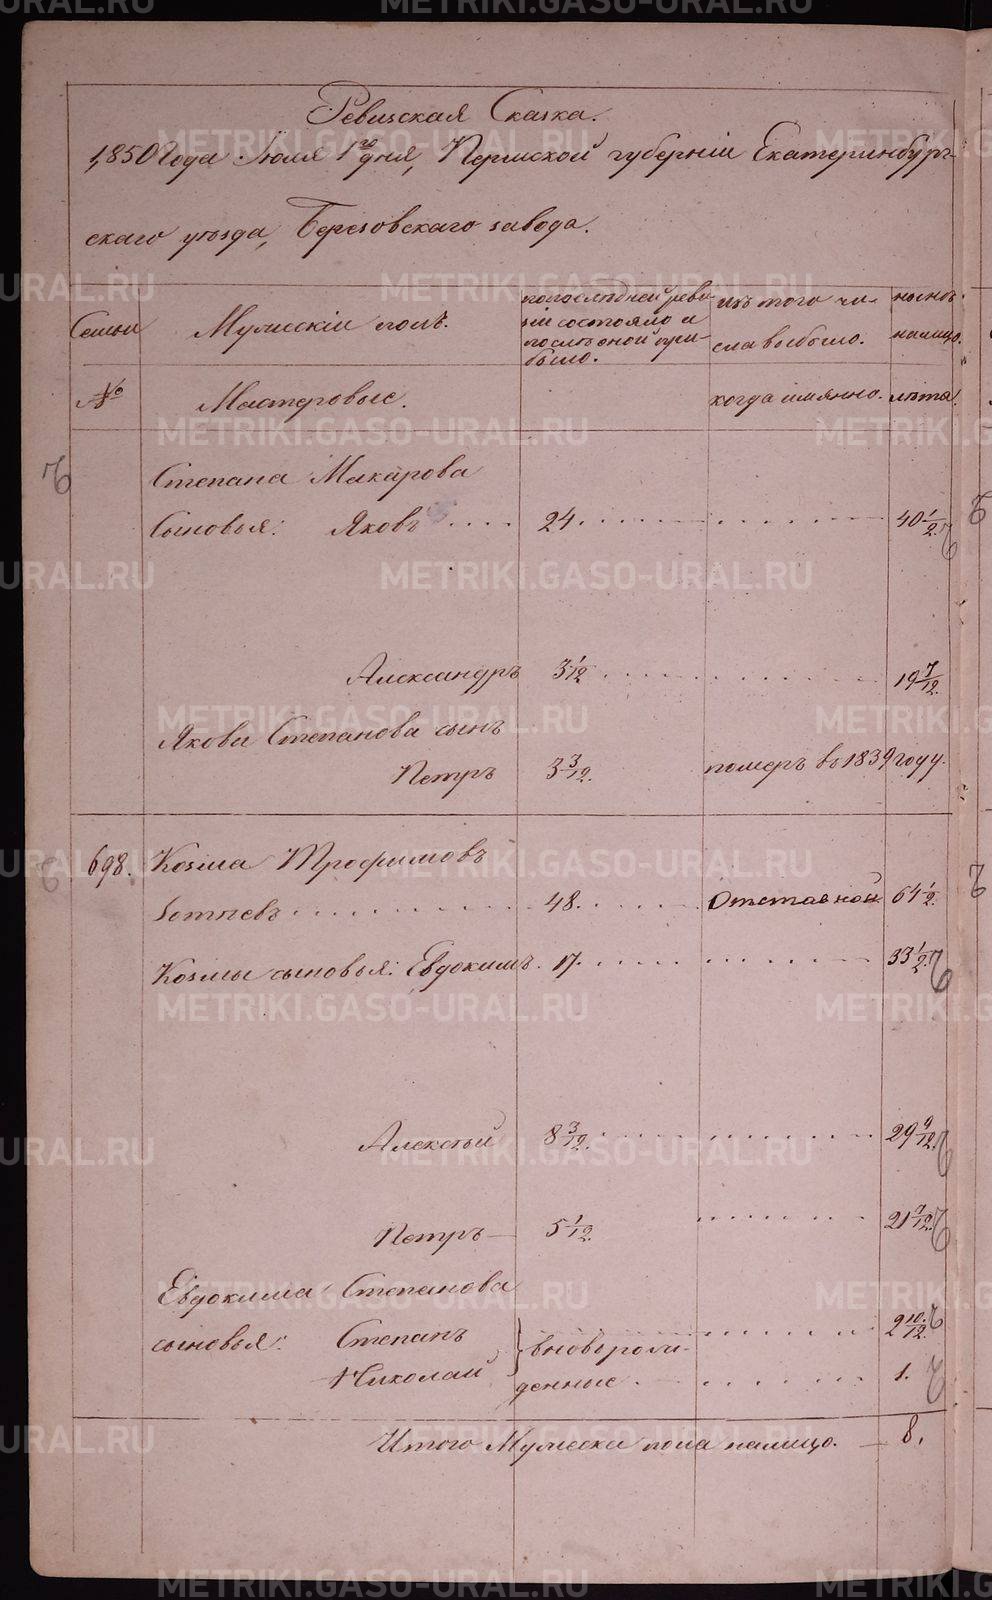 Ревизская Сказка.
1850 Года Июля 1го дня, Пермской губернiи Екатеринбург-
скаго уѣзда, Березовскаго завода.
Семьи
Мужескiй полъ.
по последней реви-
зiи состояло и
послѣ оной при-
было.
изъ того чи-
сла выбыло.
нынѣ
налицо.
№
Мастеровые.
когда имянно.
лѣта.
Степана Макарова
Сыновья: Яковъ 24. 40 1/2.
Александръ 3 1/12 19 7/12.
Якова Степанова сынъ
Петръ 3 3/12. померъ въ 1839 году.
698. Козма Трофимовъ
48. Отставной 64 1/2.
Козмы сыновья: Евдокимъ. 17. 33 1/2.
Алексѣй 8 3/12. 29 9/12.
Петръ 5 1/12. 21 7/12.
Евдокима Степанова
сыновья: Степанъ 2 10/12.
Николай вновьрож-
денные 1.
Итого Мужеска пола налицо. 8.
METRIKI.GASO-URAL.RU